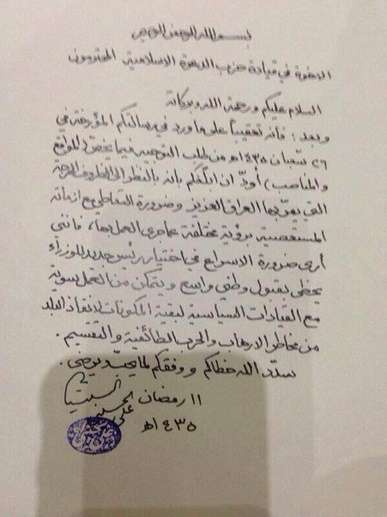 بسم الله الرحمن الرحيم
الاخوة في قيادة حزب الدعوة الاسلامية المحترمون
السلام عليكم ورحمة الله وبركاته
وبعد : فانه تعقيباً على ما ورد في رسالتكم المؤرخة في
٢٦ شعبان ١٤٣٥هـ من طلب التوجيه فيما يخص (المواقع
والمناصب) أودّ ان ابلّغكم بانه بالنظر الى الظروف الحرجة
التي يمرّ بها العراق العزيز وضرورة التعاطي مع ازماته
المستعصية برؤية مختلفة عما جرى العمل بها ، فانني
أرى ضرورة الاسراع في اختيار رئيس جديد للوزراء
يحظى بقبول وطني واسع ويتمكن من العمل سوية
مع القيادات السياسية لبقية المكونات لانقاذ البلد
من مخاطر الارهاب والحرب الطائفية والتقسيم .
سدّد الله خطاكم ووفقكم لما يحب ويرضى .
١١ رمضان
١٤٣٥هـ
علي الحسيني السيستاني